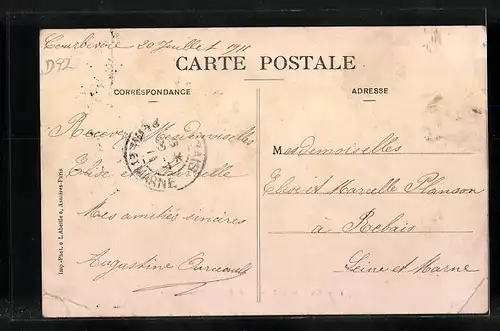 Courbevoie 20 Juillet 1911
D92
CARTE POSTALE
CORRESPONDANCE
ADRESSE
Recevez Mesdemoiselles
Elise et Marcelle
Mes amitiés sincères
Augustine
Mesdemoiselles
Elise et Marcelle Planson
à Rebais
Seine et Marne
REBAIS
SEINE ET MARNE
Imp.-Phot. « L'Abeille », Asnières-Paris